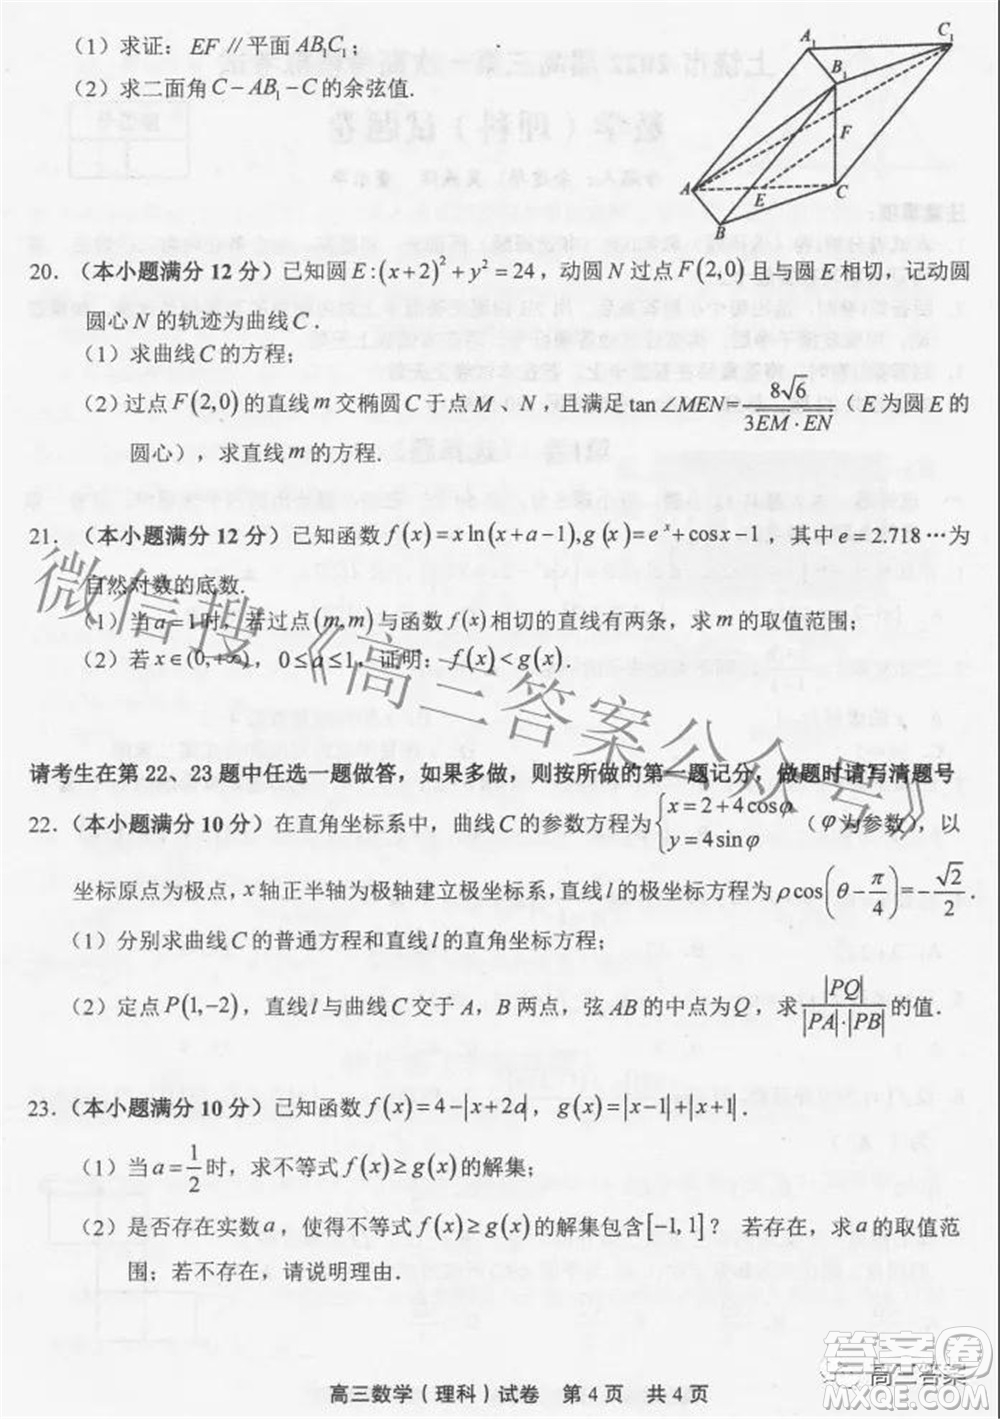 （1）求证：EF // 平面 AB₁C₁；
（2）求二面角 C－AB₁－C 的余弦值.
A₁ C₁ B₁ F A E C B
20．（本小题满分 12 分）已知圆 E:(x+2)²+y²=24，动圆 N 过点 F(2,0) 且与圆 E 相切，记动圆
圆心 N 的轨迹为曲线 C．
（1）求曲线 C 的方程；
（2）过点 F(2,0) 的直线 m 交椭圆 C 于点 M 、N ，且满足 tan∠MEN=8√6/(3EM·EN)（E 为圆 E 的
圆心），求直线 m 的方程.
21．（本小题满分 12 分）已知函数 f(x)=xln(x+a−1),g(x)=eˣ+cosx−1，其中 e=2.718⋯为
自然对数的底数.
（1）当 a=1时，若过点(m,m)与函数 f(x) 相切的直线有两条，求 m 的取值范围；
（2）若 x∈(0,+∞)，0≤a≤1，证明：f(x)<g(x).
请考生在第 22、23 题中任选一题做答，如果多做，则按所做的第一题记分，做题时请写清题号
22．（本小题满分 10 分）在直角坐标系中，曲线 C 的参数方程为{x=2+4cosφ y=4sinφ（φ为参数），以
坐标原点为极点，x 轴正半轴为极轴建立极坐标系，直线 l 的极坐标方程为 ρcos(θ−π/4)=−√2/2 .
（1）分别求曲线 C 的普通方程和直线 l 的直角坐标方程；
（2）定点 P(1,−2)，直线 l 与曲线 C 交于 A，B 两点，弦 AB 的中点为 Q ，求|PQ|/(|PA|·|PB|)的值.
23．（本小题满分 10 分）已知函数 f(x)=4−|x+2a|，g(x)=|x−1|+|x+1|．
（1）当 a=1/2 时，求不等式 f(x)≥g(x) 的解集；
（2）是否存在实数 a，使得不等式 f(x)≥g(x) 的解集包含[−1,1]？ 若存在，求 a 的取值范
围；若不存在，请说明理由.
高三数学（理科）试卷 第 4 页 共 4 页
微信搜《高三答案公众号》
高三答案
答案圈
MXQE.COM